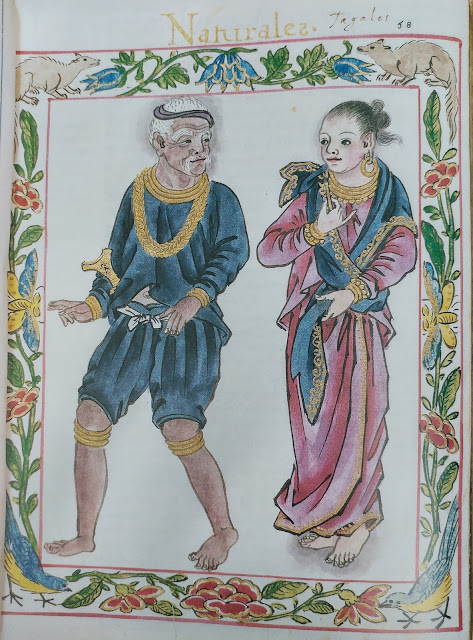 Naturales. Tagalos 58